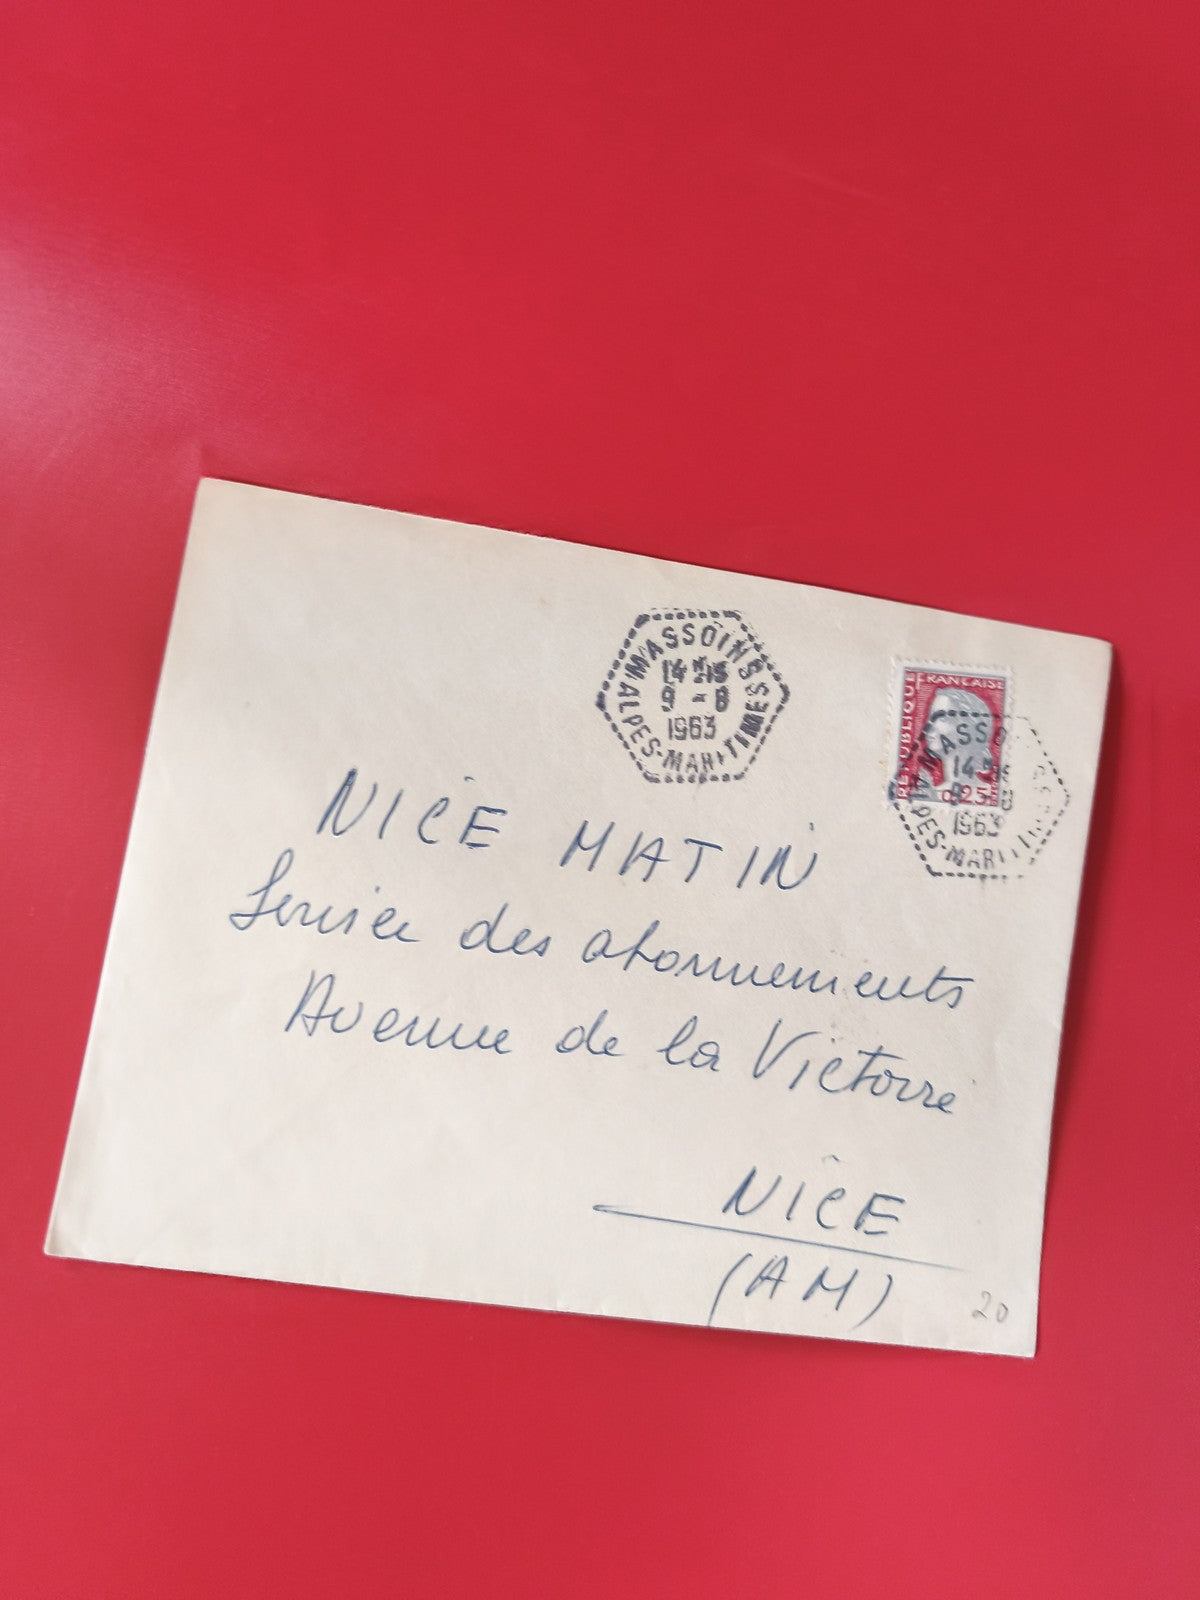 MASSOINS
14H15
9-8
1963
ALPES-MARITIMES
REPUBLIQUE FRANCAISE
0,25
MASSO
14H
1963
ALPES-MARI
NICE MATIN
Service des abonnements
Avenue de la Victoire
NICE
(AM)
20